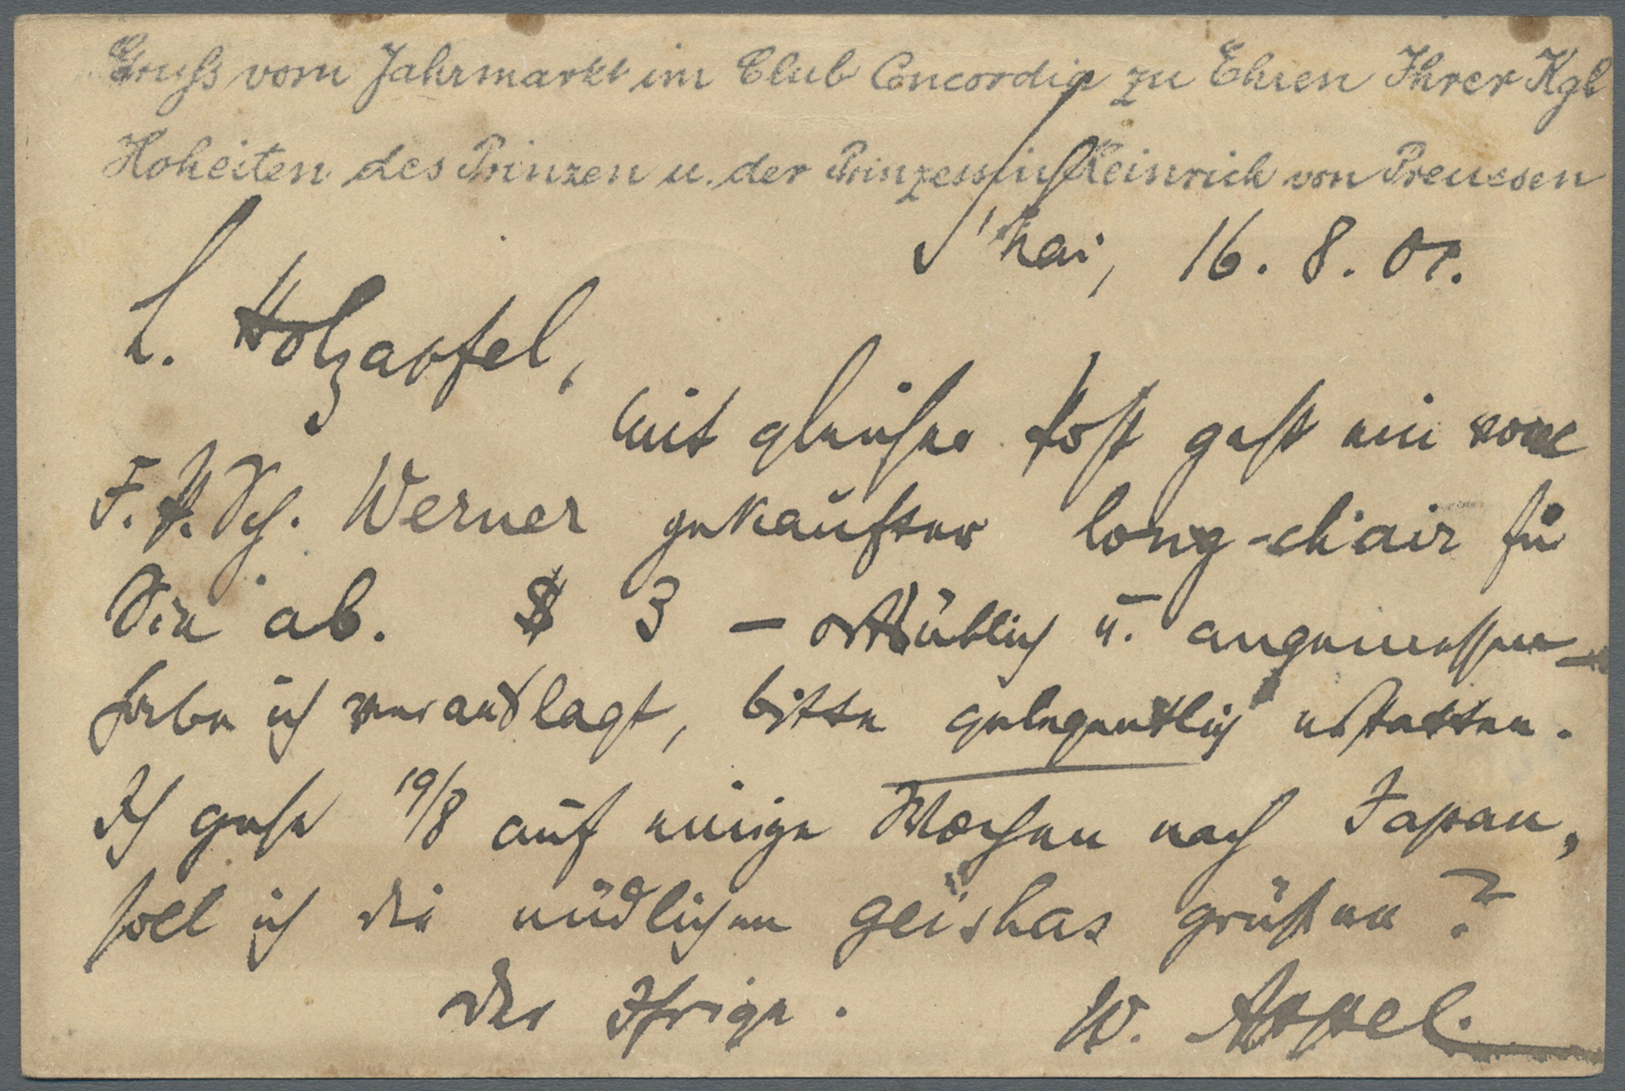 Gruss vom Jahrmarkt im Club Concordia zu Ehren Ihrer Kgl
Hoheiten des Prinzen u. der Prinzessin Heinrich von Preussen
S'hai, 16. 8. 01.
L. Holzapfel,
mit gleicher Post geht ein vom
F. P. Sch. Werner gekaufter long-chair für
Sie ab. $ 3 – ortsüblich u. angemessen –
habe ich verauslagt, bitte gelegentlich erstatten.
Ich gehe 19/8 auf einige Wochen nach Japan,
soll ich die niedlichen geishas grüßen?
Der Ihrige.
W. Appel.